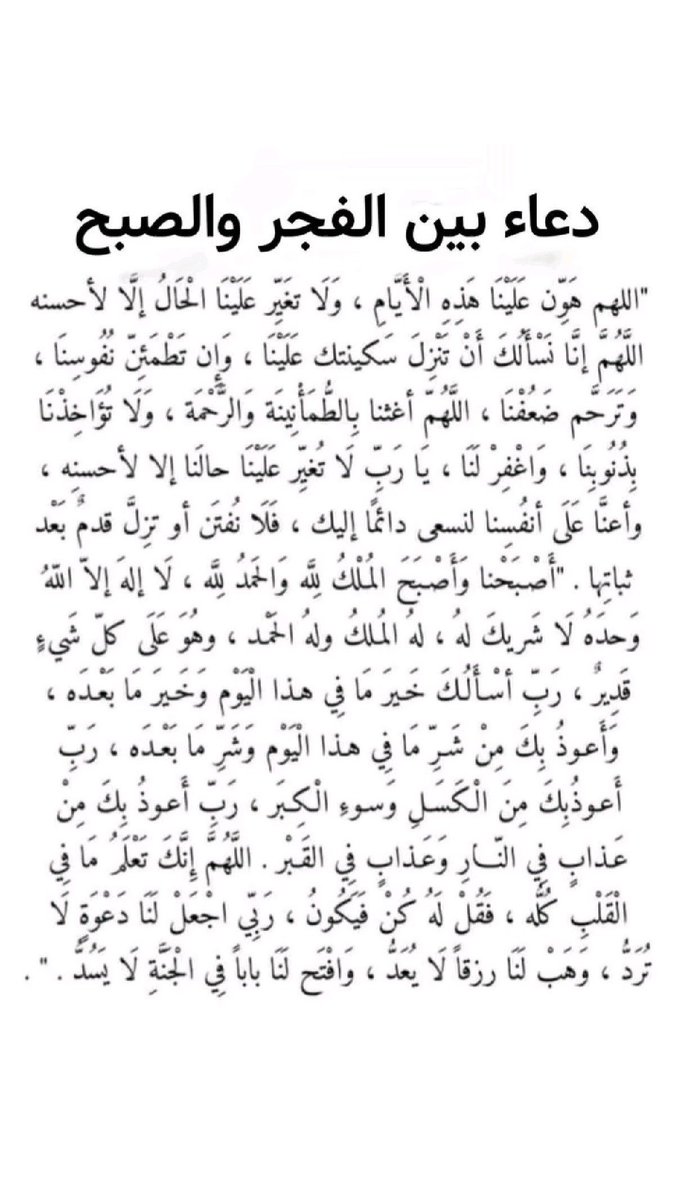 دعاء بين الفجر والصبح
"اللهم هَوِّن عَلَيْنَا هَذِهِ الْأَيَّامِ ، وَلَا تغَيِّر عَلَيْنَا الْحَالُ إلَّا لأحسنه
اللَّهُمَّ إنَّا نَسْأَلُكَ أَنْ تَنْزِلَ سَكينتك عَلَيْنَا ، وَإِن تَطْمَئِنّ نُفُوسِنَا ،
وَتَرَحَّم ضَعُفْنَا ، اللَّهُمّ أغثنا بِالطُّمَأْنِينَة وَالرَّحْمَة ، وَلَا تُؤَاخِذْنَا
بِذُنُوبِنَا ، وَاغْفِرْ لَنَا ، يَا رَبِّ لَا تُغيِّر عَلَيْنَا حالنَا إلا لأحسنِه ،
وأعنَّا عَلَى أنفُسِنا لنسعى دائمًا إليك ، فَلَا نُفتَن أو تزِلَّ قدمٌ بَعْد
ثباتِها . "أَصْبَحْنا وَأَصْبَحَ المُلْكُ لِلَّه وَالحَمدُ لِلَّه ، لَا إلهَ إلاّ اللّهُ
وَحدَهُ لَا شَريكَ لهُ ، لهُ المُلكُ ولهُ الحَمْد ، وهُوَ عَلَى كلّ شَيءٍ
قَدِيرٌ ، رَبِّ أسْأَلُكَ خَيرَ مَا فِي هذا الْيَوْم وَخَيرَ مَا بَعْدَه ،
وَأَعوذُ بِكَ مِنْ شَرِّ مَا فِي هذا الْيَوْم وَشَرِّ مَا بَعْدَه ، رَبِّ
أَعوذُبِكَ مِنَ الْكَسَلِ وَسوءِ الْكِبَر ، رَبِّ أَعوذُ بِكَ مِنْ
عَذابٍ فِي النّارِ وَعَذابٍ فِي القَبْر . اللَّهُمَّ إِنَّكَ تَعْلَمُ مَا فِي
الْقَلْبِ كُلُّه ، فَقُلْ لَهُ كُنْ فَيَكُونُ ، رَبِّي اجْعَلْ لَنَا دَعْوَةٍ لَا
تُرَدُّ ، وَهَبْ لَنَا رزقاً لَا يُعَدُّ ، وَافْتَح لَنَا باباً فِي الْجَنَّةِ لَا يَسُدُّ . " .